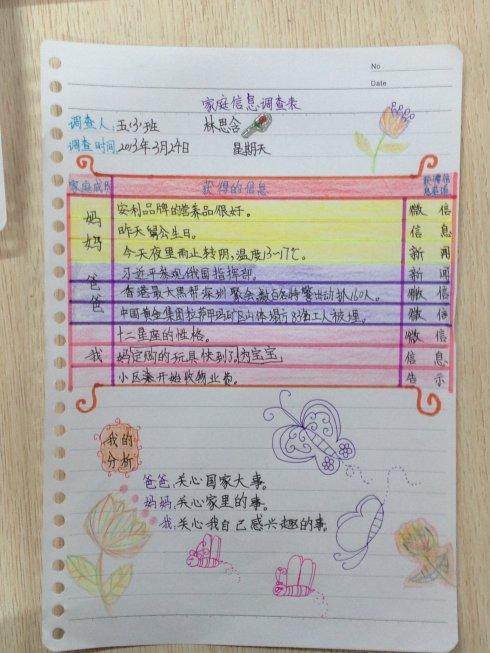 No
Date
家庭信息调查表
调查人:五(3)班 林思含
调查时间:2013年3月24日 星期天
家庭成员 获得的信息 获得信息渠道
妈妈 安利品牌的营养品很好。 微信
昨天舅公生日。 信息
今天夜里雨止转阴,温度13~17℃。 新闻
爸爸 习近平参观俄国指挥部。 新闻
香港最大黑帮深圳聚会,数百名特警出动抓160人。 微信
中国黄金集团拉萨甲玛矿区山体塌方83名工人被埋。 微信
我 十二星座的性格。 微信
妈定购的玩具快到了,淘宝宝 信息
小区开始收物业费。 告示
我的分析
爸爸,关心国家大事。
妈妈,关心家里的事。
我,关心我自己感兴趣的事。